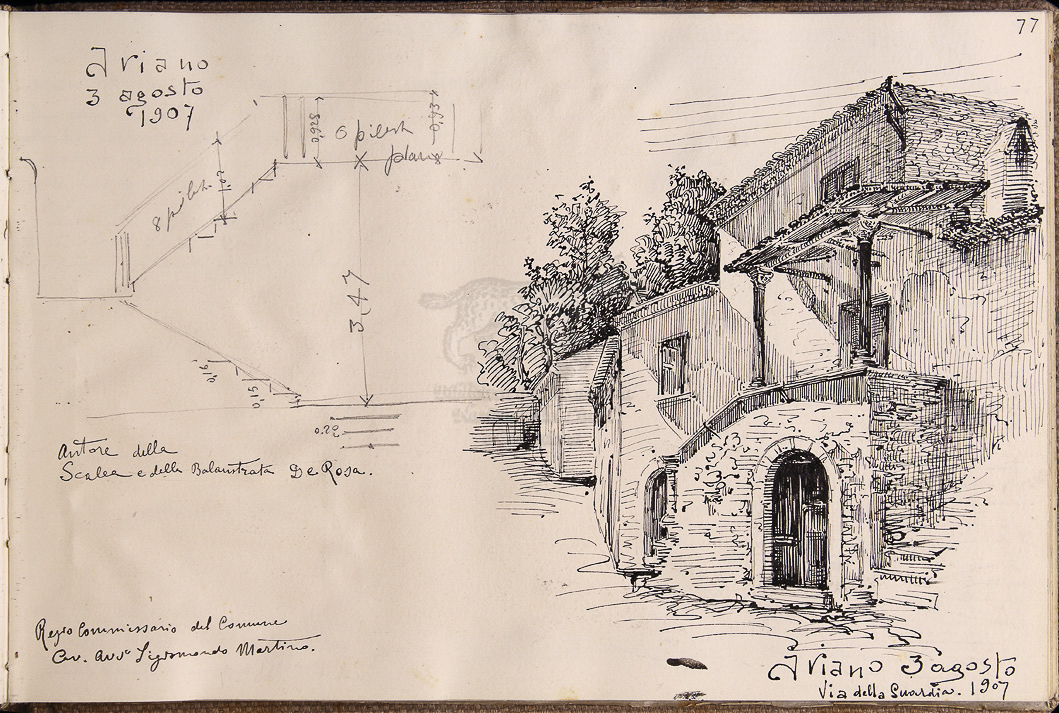 77
Ariano
3 agosto
1907
0,925
6 pilastr
0,93
piano
8 pilastr.
3,47
0,16
0,15
0.20
Autore della
Scalea e della Balaustrata De Rosa.
Regio Commissario del Comune
Cav. Avv° Sigismondo Martino.
Ariano 3 agosto
Via della Guardia. 1907